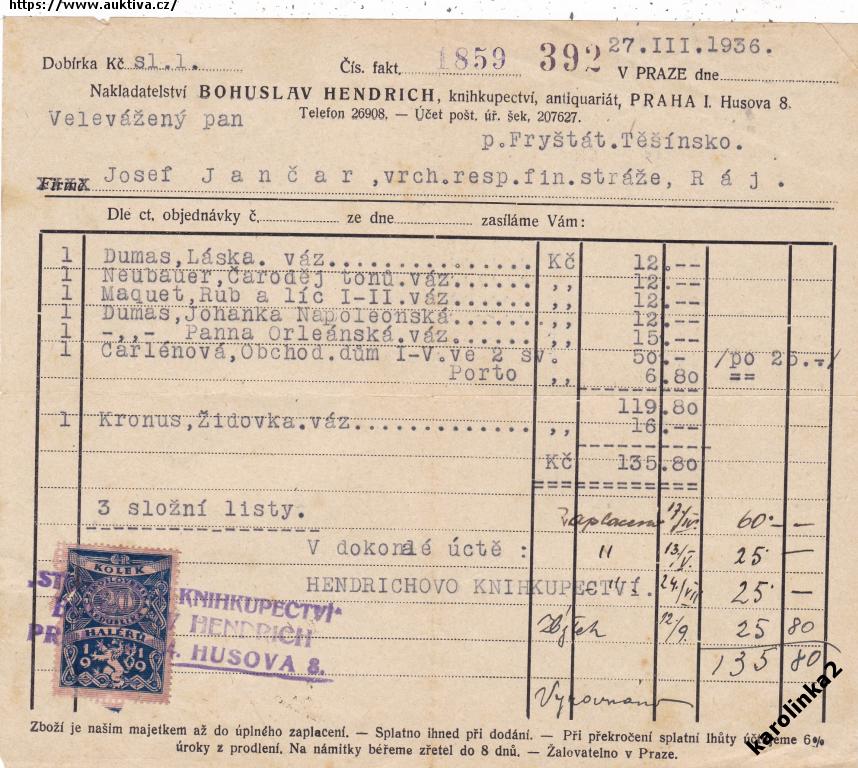 https://www.auktiva.cz/
Dobírka Kč sl.l. Čís. fakt. 1859 392 27.III.1936.
V PRAZE dne
Nakladatelství BOHUSLAV HENDRICH, knihkupectví, antiquariát, PRAHA I. Husova 8.
Telefon 26908. — Účet pošt. úř. šek, 207627.
Velevážený pan
p.Fryštát.Těšínsko.
Firma Josef Jančar,vrch.resp.fin.stráže, Ráj.
Dle ct. objednávky č. ze dne zasíláme Vám:
1 Dumas,Láska. váz................ Kč 12.--
1 Neubauer,Čaroděj tonů.váz...... ,, 12.--
1 Maquet,Rub a líc I-II.váz...... ,, 12.--
1 Dumas,Johanka Napoleonská...... ,, 12.--
1 -,,- Panna Orleánská.váz....... ,, 15.--
1 Carlénová,Obchod.dům I-V.ve 2 sv. 50.- /po 25.-/
Porto ,, 6.80 ==
119.80
1 Kronus,Židovka.váz.............. ,, 16.--
Kč 135.80
3 složní listy.
zaplaceno 17/IV. 60·— —
V dokonalé úctě : " 13/V. 25· —
HENDRICHOVO KNIHKUPECTVÍ. - " - 24/VII 25· —
Zbytek 12/9. 25 80
135 80
Vyrovnáno
KOLEK
20
HALÉŘŮ
1919
KNIHKUPECTVÍ"
HENDRICH
HUSOVA 8.
Zboží je naším majetkem až do úplného zaplacení. — Splatno ihned při dodání. — Při překročení splatní lhůty účtujeme 6%
úroky z prodlení. Na námitky béřeme zřetel do 8 dnů. — Žalovatelno v Praze.
karolinka2